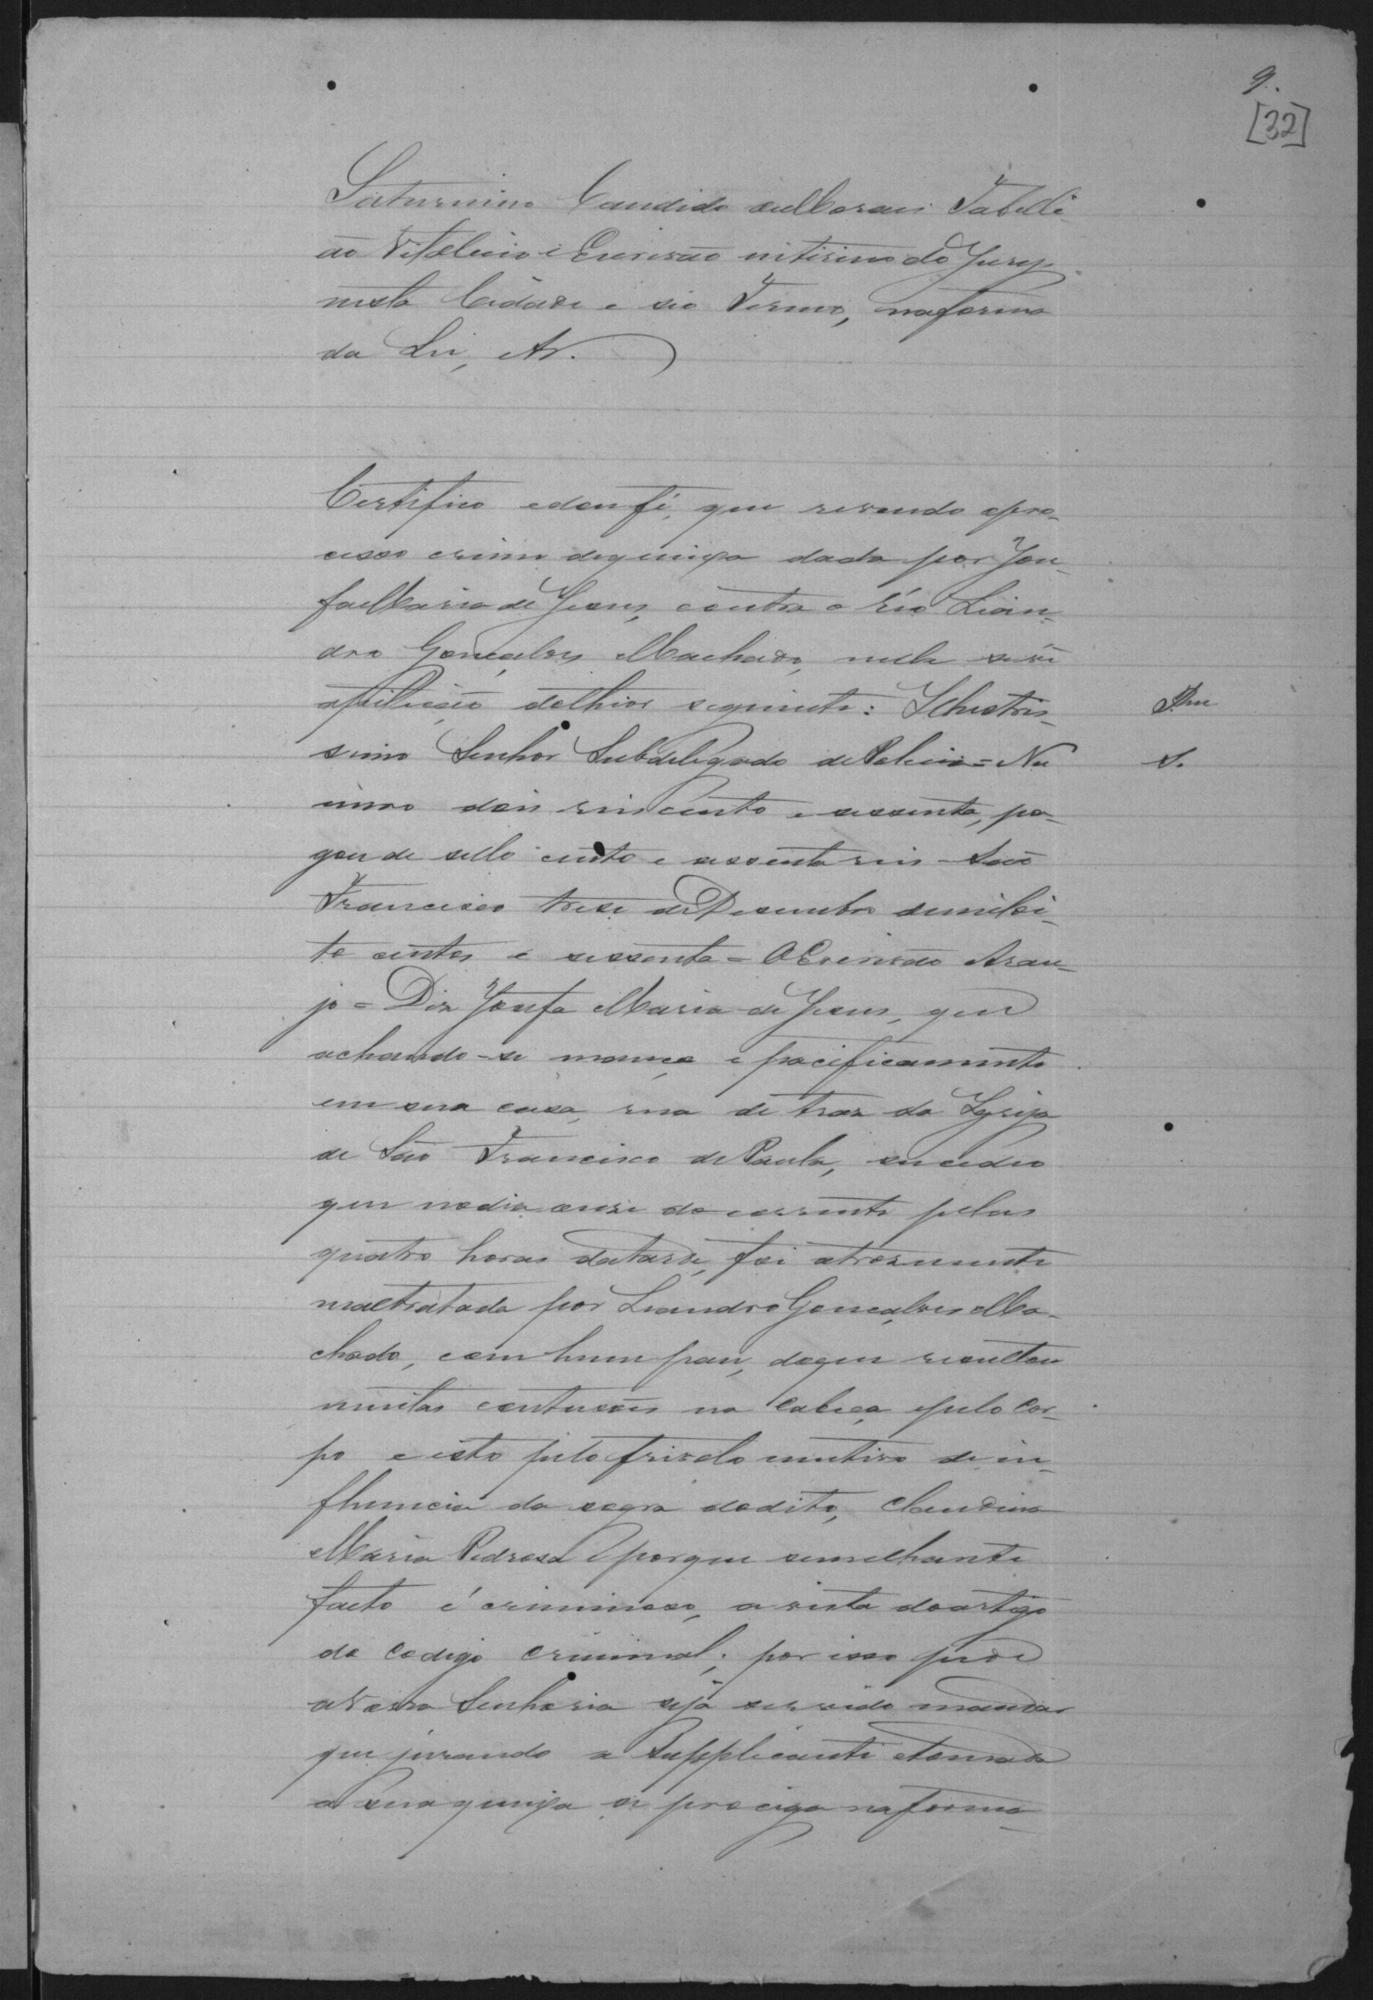 9.
[32]
Saturnino Candido de Moraes Tabelli-
ão Vitalicio e Escrivão intirino do Jury
nesta Cidade e seo Termo, na forma
da Lei, etc.
Certifico e dou fé, que revendo o pro-
cesso crime de queixa dada por Jose-
fa Maria de Jesus, contra o réo Lean-
dro Gonçalves Machado, nelle se vê
a petição do theor seguinte: Illustris-
simo Senhor Subdelegado de Policia = Nu
mero dois reis cento e sessenta, pa-
gou de sello cento e sessenta reis - São
Francisco trese de Desembro de mil oi-
to centos e sessenta = O Escrivão Arau-
jo = Diz Josefa Maria de Jesus, que
achando-se mança e pacificamente
em sua casa, rua de traz da Igreja
de São Francisco de Paula, succedeo
que no dia onze do corrente pelas
quatro horas da tarde, foi atrosmente
maltratada por Leandro Gonçalves Ma-
chado, com hum pau, do que resultou
muitas contusões na cabeça e pelo cor-
po e isto pelo frivolo mutivo de in-
fluencia da sogra do dito, Claudina
Maria Pedrosa E porque semelhante
facto é criminoso, a vista do artigo
do codigo criminal; por isso pede
a Vossa Senhoria seja servido mandar
que jurando a Supplicante e tomada
a sua queixa se prociga na forma